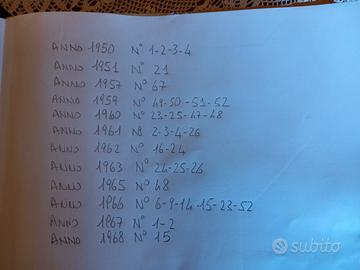 ANNO 1950 N° 1-2-3-4
ANNO 1951 N° 21
ANNO 1957 N° 67
ANNO 1959 N° 49-50-51-52
ANNO 1960 N° 23-25-47-48
ANNO 1961 N° 2-3-4-26
ANNO 1962 N° 16-24
ANNO 1963 N° 24-25-26
ANNO 1965 N° 48
ANNO 1966 N° 6-9-14-15-23-52
ANNO 1967 N° 1-2
ANNO 1968 N° 15
subito